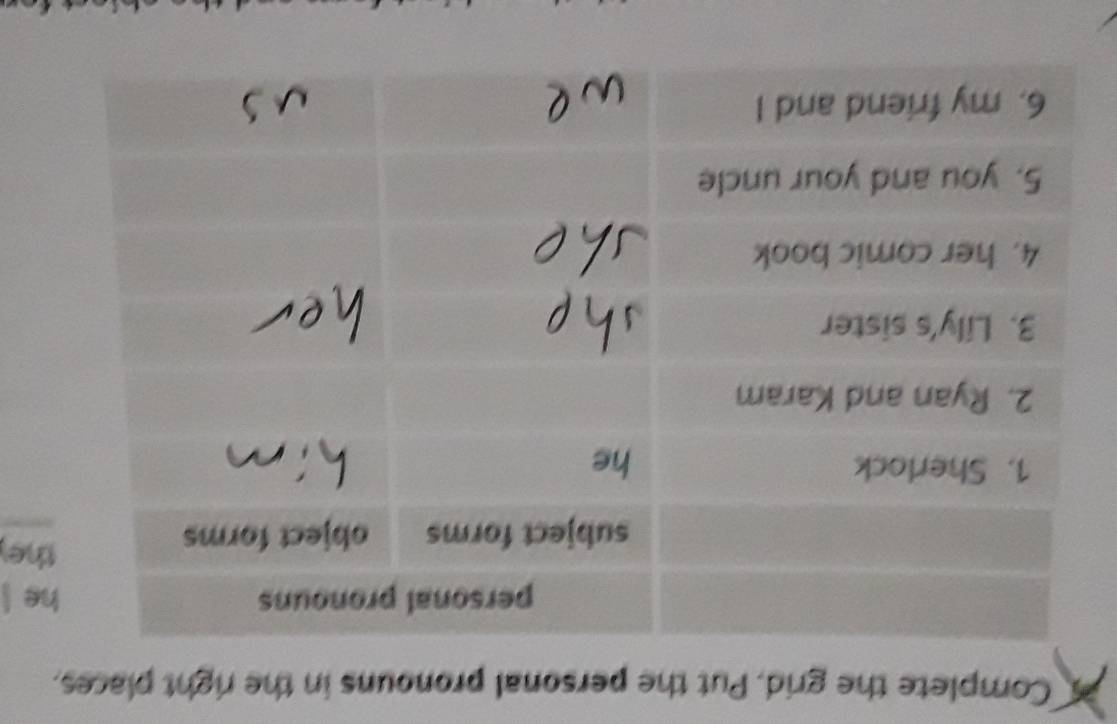 Complete the grid. Put the personal pronouns in the right places.
personal pronouns
subject forms object forms
1. Sherlock he him
2. Ryan and Karam
3. Lily's sister she her
4. her comic book she
5. you and your uncle
6. my friend and I we us
he
they